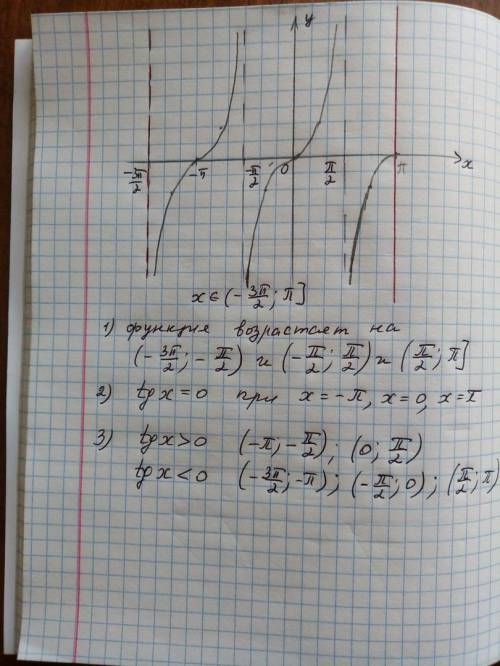 y
-3π/2 -π -π/2 0 π/2 π x
x ∈ (-3π/2; π]
1) функция возрастает на
(-3π/2; -π/2) и (-π/2; π/2) и (π/2; π]
2) tg x = 0 при x = -π, x = 0, x = π
3) tg x > 0 (-π; -π/2); (0; π/2)
tg x < 0 (-3π/2; -π); (-π/2; 0); (π/2; π)